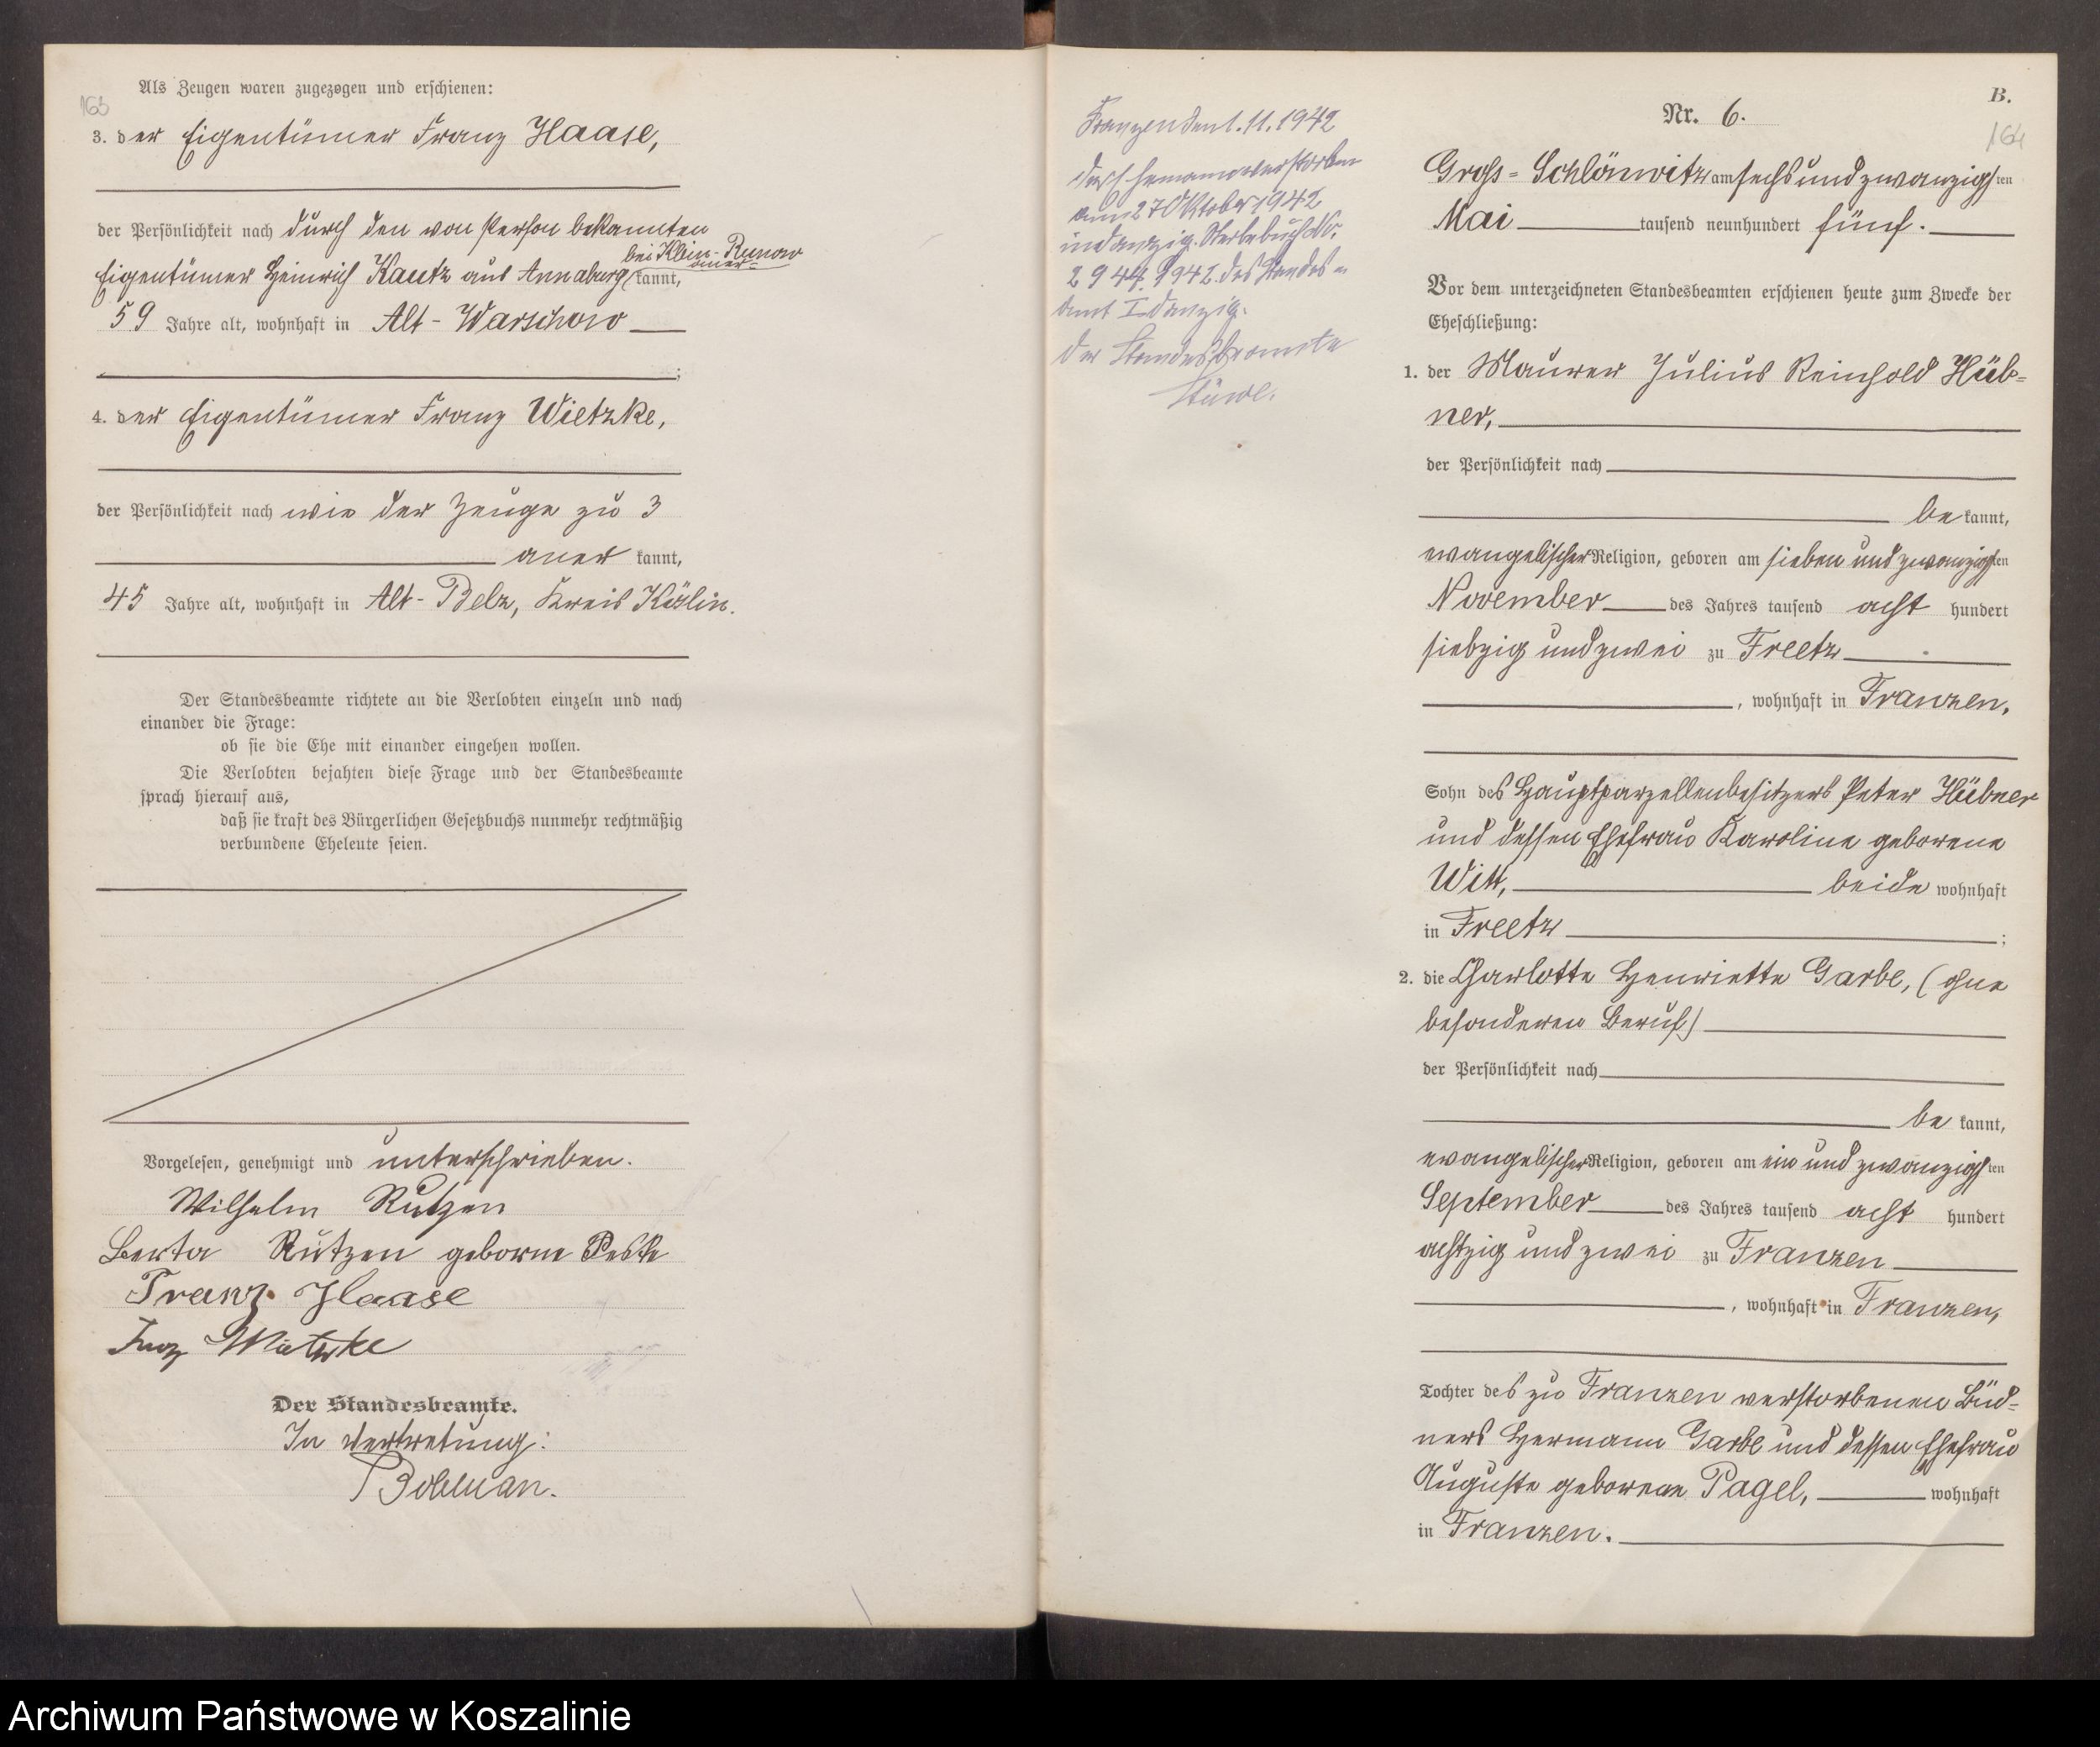 163
Als Zeugen waren zugezogen und erschienen:
3. der Eigentümer Franz Haase,
der Persönlichkeit nach durch den von Person bekannten
bei Klein-Runow
Eigentümer Heinrich Kautz aus Annaburg anerkannt,
59 Jahre alt, wohnhaft in Alt-Warschow
;
4. der Eigentümer Franz Wietzke,
der Persönlichkeit nach wie der Zeuge zu 3
anerkannt,
45 Jahre alt, wohnhaft in Alt-Belz, Kreis Köslin.
Der Standesbeamte richtete an die Verlobten einzeln und nach
einander die Frage:
ob sie die Ehe mit einander eingehen wollen.
Die Verlobten bejahten diese Frage und der Standesbeamte
sprach hierauf aus,
daß sie kraft des Bürgerlichen Gesetzbuchs nunmehr rechtmäßig
verbundene Eheleute seien.
Vorgelesen, genehmigt und unterschrieben.
Wilhelm Rützen
Berta Rützen geborne Peske
Franz Haase
Franz Wietzke
Der Standesbeamte.
In Vertretung:
Franzen den 1.11.1942
Der Ehemann verstorben
am 27 Oktober 1942
in Danzig. Sterbebuch Nr.
2944. 1942 des Standes-
amt I Danzig.
Der Standesbeamte
B.
Nr. 6.
164
Gross-Schlönwitz am sechsundzwanzigsten
Mai tausend neunhundert fünf.
Vor dem unterzeichneten Standesbeamten erschienen heute zum Zwecke der
Eheschließung:
1. der Maurer Julius Reinhold Hüb=
ner,
der Persönlichkeit nach
bekannt,
evangelischer Religion, geboren am siebenundzwanzigsten
November des Jahres tausend acht hundert
siebzig und zwei zu Freetz
, wohnhaft in Franzen,
Sohn des Hauptparzellenbesitzers Peter Hübner
und dessen Ehefrau Karoline geborene
Witt, beide wohnhaft
in Freetz ;
2. die Charlotte Henriette Garbe, (ohne
besonderen Beruf)
der Persönlichkeit nach
bekannt,
evangelischer Religion, geboren am einundzwanzigsten
September des Jahres tausend acht hundert
achtzig und zwei zu Franzen
, wohnhaft in Franzen,
Tochter des zu Franzen verstorbenen Büd=
ners Hermann Garbe und dessen Ehefrau
Auguste geborene Pagel, wohnhaft
in Franzen.
Archiwum Państwowe w Koszalinie